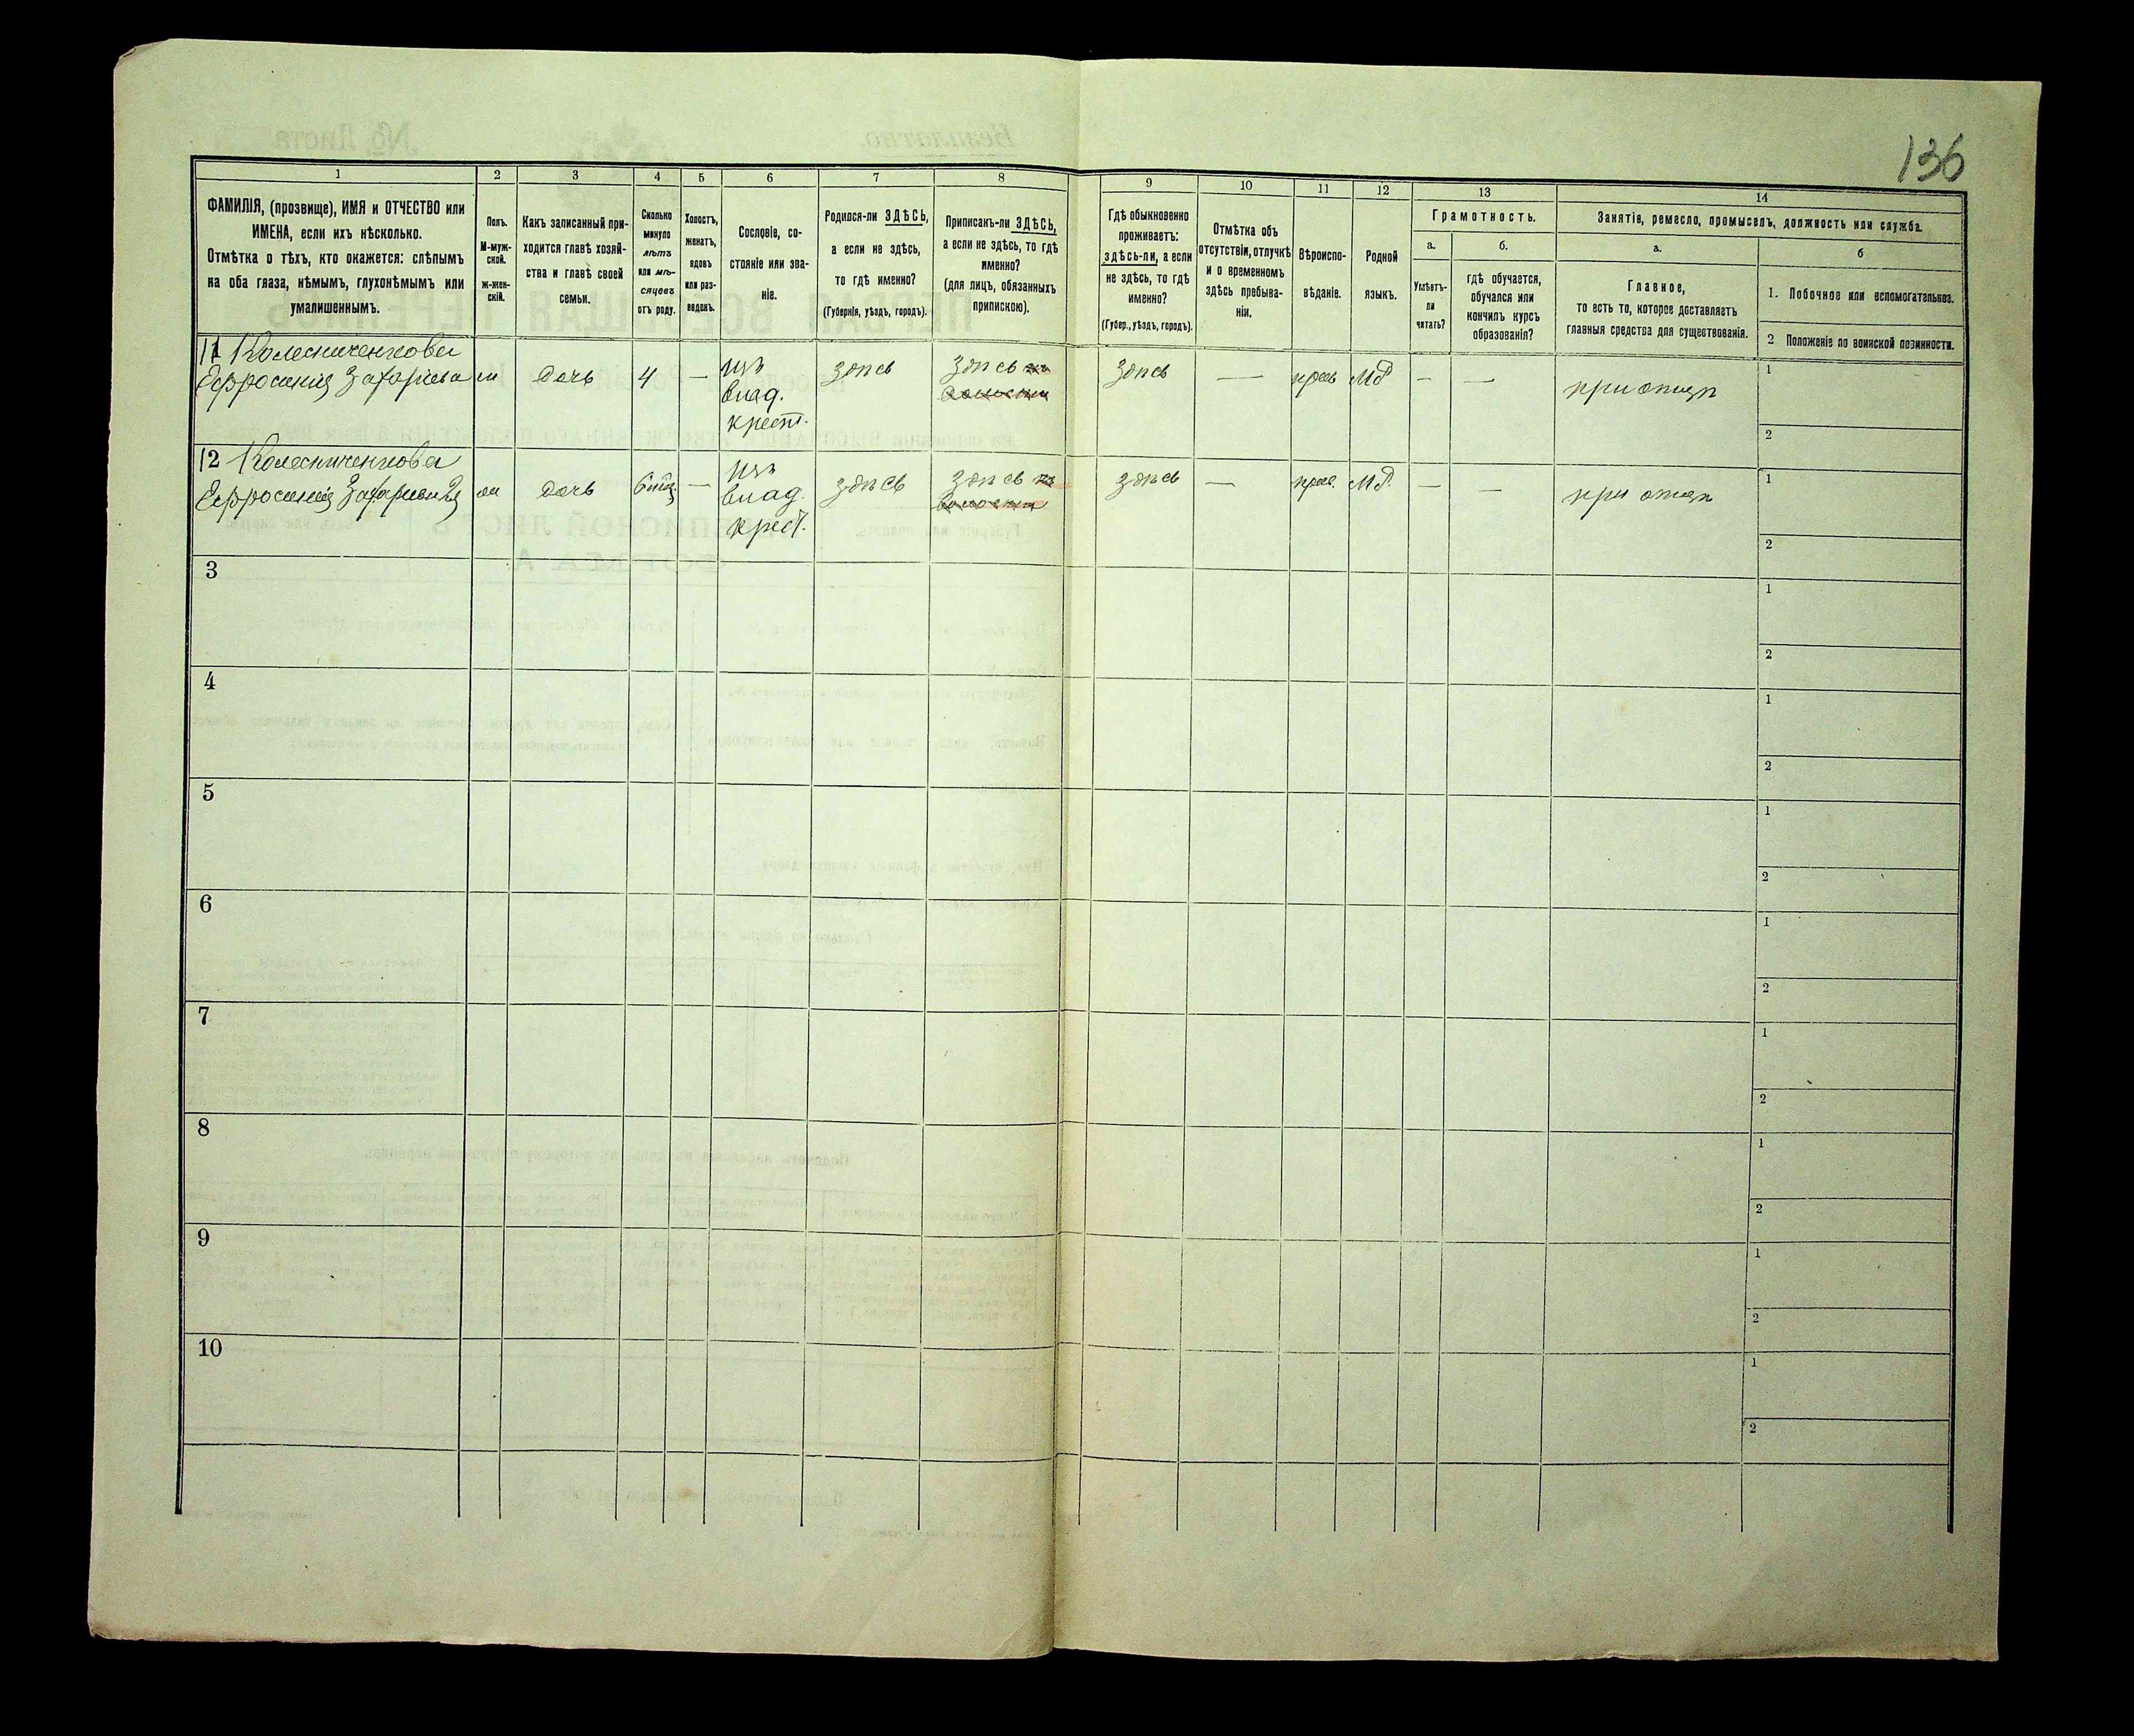 136
1 2 3 4 5 6 7 8 9 10 11 12 13 14
ФАМИЛІЯ, (прозвище), ИМЯ и ОТЧЕСТВО или
ИМЕНА, если ихъ нѣсколько.
Отмѣтка о тѣхъ, кто окажется: слѣпымъ
на оба глаза, нѣмымъ, глухонѣмымъ или
умалишеннымъ.
Полъ.
М-муж-
ской.
ж-жен-
скій.
Какъ записанный при-
ходится главѣ хозяй-
ства и главѣ своей
семьи.
Сколько
минуло
лѣтъ
или мѣ-
сяцевъ
отъ роду.
Холостъ,
женатъ,
вдовъ
или раз-
веденъ.
Сословіе, со-
стояніе или зва-
ніе.
Родился-ли ЗДѢСЬ,
а если не здѣсь,
то гдѣ именно?
(Губернія, уѣздъ, городъ).
Приписанъ-ли ЗДѢСЬ,
а если не здѣсь, то гдѣ
именно?
(для лицъ, обязанныхъ
припискою).
Гдѣ обыкновенно
проживаетъ:
здѣсь-ли, а если
не здѣсь, то гдѣ
именно?
(Губер., уѣздъ, городъ).
Отмѣтка объ
отсутствіи, отлучкѣ
и о временномъ
здѣсь пребыва-
ніи.
Вѣроиспо-
вѣданіе.
Родной
языкъ.
Грамотность.
а.
Умѣетъ-
ли
читать?
б.
гдѣ обучается,
обучался или
кончилъ курсъ
образованія?
Занятіе, ремесло, промыселъ, должность или служба.
а.
Главное,
то есть то, которое доставляетъ
главныя средства для существованія.
б
1. Побочное или вспомогательное.
2 Положеніе по воинской повинности.
11 Колесниченкова
Ефросинія Захаріева
дочь
4
—
изъ
влад.
крест.
здѣсь
здѣсь
здѣсь
—
прав
Мр
—
—
при отцѣ
1
2
12 Колесниченкова
Ефросинія
дочь
—
изъ
влад.
крест.
здѣсь
здѣсь
здѣсь
—
прав.
Мр.
—
—
при отцѣ
1
2
3
1
2
4
1
2
5
1
2
6
1
2
7
1
2
8
1
2
9
1
2
10
1
2